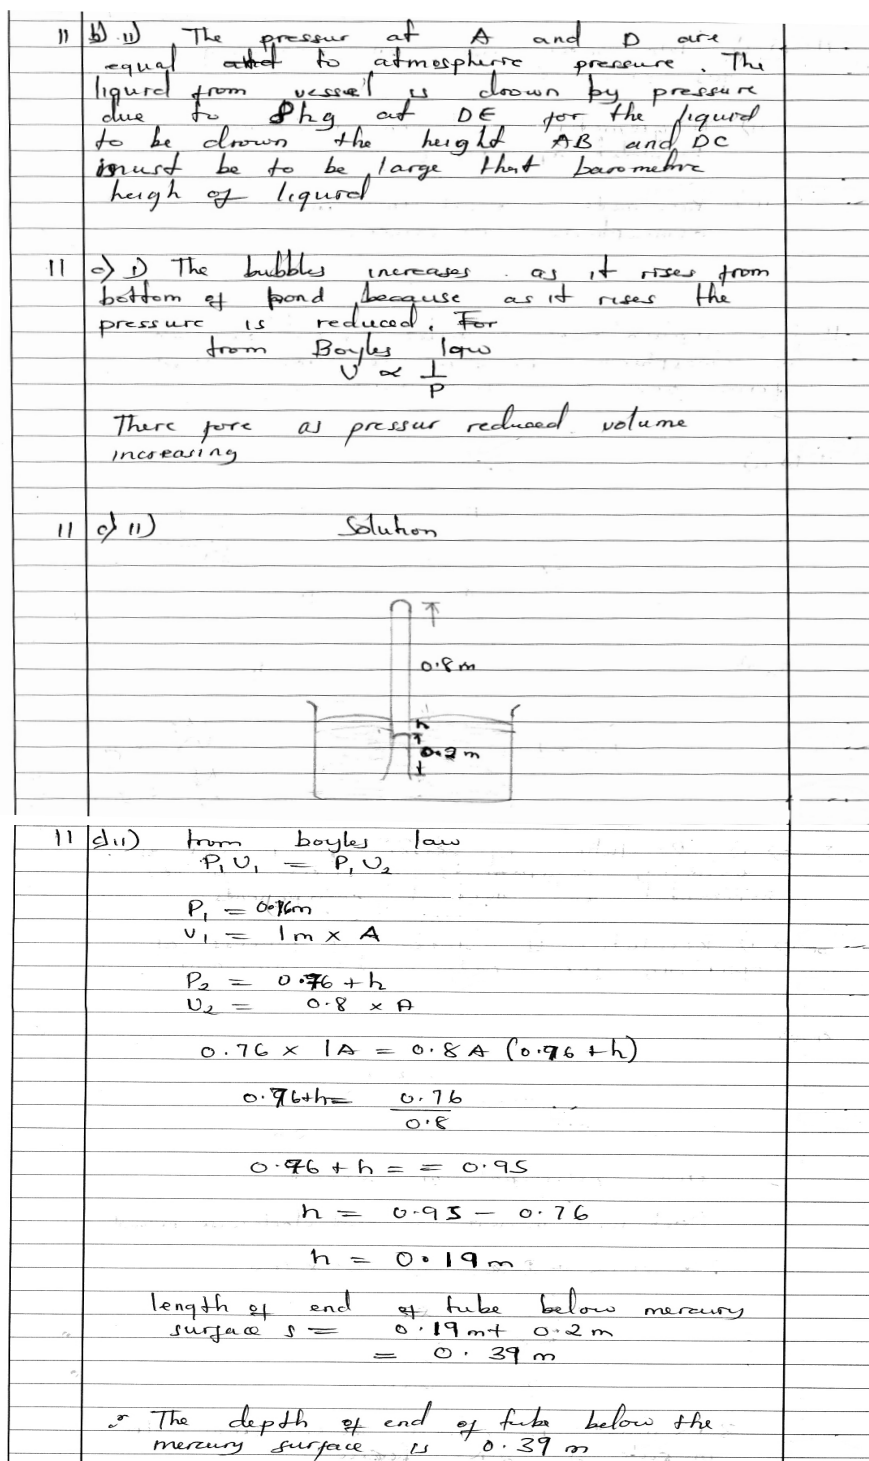 11 b) ii) The pressur at A and D are
equal to atmospheric pressure. The
liquid from vessel is drown by pressure
due to ρhg at DE for the liquid
to be drown the height AB and DC
must be to be large that barometric
heigh of liquid
11 c) i) The bubbles increases as it rises from
bottom of pond because as it rises the
pressure is reduced. For
from Boyles law
V ∝ 1/P
There fore as pressur reduced volume
increasing
11 c) ii) Solution
0.8 m
h
0.2 m
11 c) ii) from boyles law
P₁V₁ = P₁V₂
P₁ = 0.76m
V₁ = 1m × A
P₂ = 0.76 + h
V₂ = 0.8 × A
0.76 × 1A = 0.8A (0.76 + h)
0.76+h = 0.76
0.8
0.76 + h = = 0.95
h = 0.95 - 0.76
h = 0.19 m
length of end of tube below mercury
surface s = 0.19m + 0.2 m
= 0.39 m
∴ The depth of end of tube below the
mercury surface is 0.39 m